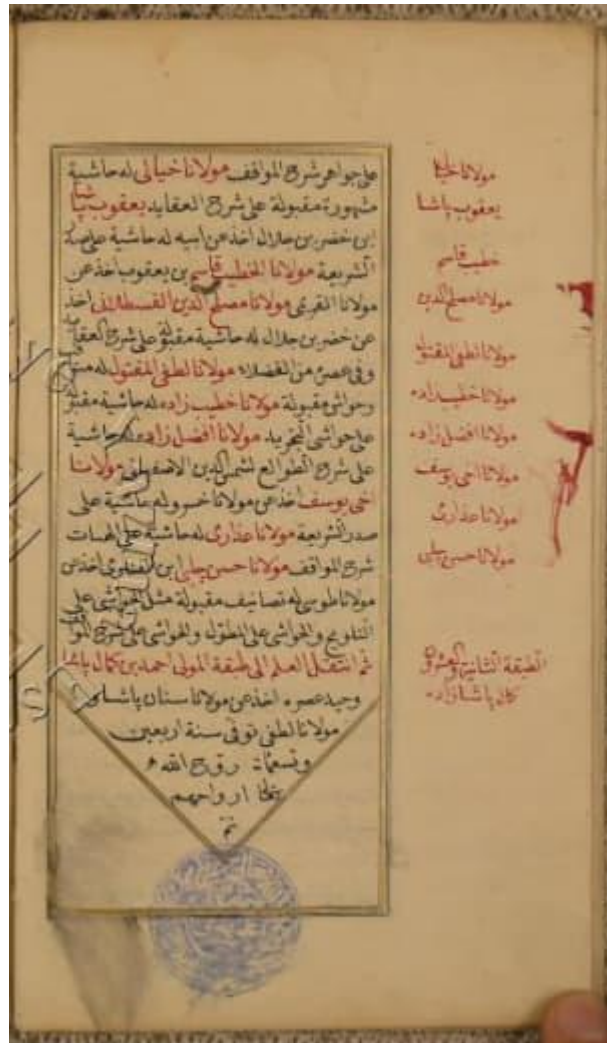 على جواهر شرح المواقف مولانا خيالى له حاشية
مشهورة مقبولة على شرح العقايد يعقوب پاشا
ابن خضر بن جلال اخذ عن ابيه له حاشية على صدر
الشريعة مولانا الخطيب قاسم بن يعقوب اخذ عن
مولانا القرى مولانا مصلح الدين القسطلانى اخذ
عن خضر بن جلال له حاشية مقبولة على شرح العقايد
وفى عصره من الفضلاء مولانا لطفى المقتول له متون
وحواشى مقبولة مولانا خطيب زاده له حاشية مقبولة
على حواشى التجريد مولانا افضل زاده له حاشية
على شرح الطوالع لشمس الدين الاصفهانى مولانا
اخى يوسف اخذ عن مولانا خسرو له حاشية على
صدر الشريعة مولانا عذارى له حاشية على الهيات
شرح المواقف مولانا حسن چلبى ابن الفنارى اخذ عن
مولانا طوسى له تصانيف مقبولة مثل الحواشى على
التلويح والحواشى على المطول والحواشى على شرح المواقف
ثم انتقل العلم الى طبقة المولى احمد بن كمال پاشا
وحيد عصره اخذ عن مولانا سنان پاشا و
مولانا لطفى توفى سنة اربعين
وتسعمائة روح الله
ارواحهم
تم
مولانا خيالى
يعقوب پاشا
خطيب قاسم
مولانا مصلح الدين
مولانا لطفى المقتول
مولانا خطيب زاده
مولانا افضل زاده
مولانا اخى يوسف
مولانا عذارى
مولانا حسن چلبى
الطبقة الثانية والعشرون
كمال پاشا زاده